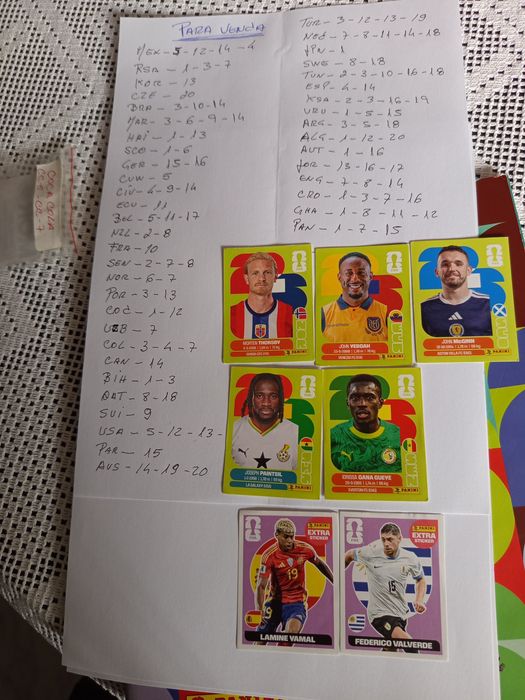 PARA VENDA
MEX - 5-12-14-4
RSA - 1-3-7
KOR - 13
CZE - 20
BRA - 3-10-14
MAR - 3-6-9-14
HAI - 1-13
SCO - 1-6
GER - 15-16
CUW - 5
CIV - 4-9-14
ECU - 11
BEL - 5-11-17
NZL - 2-8
FRA - 10
SEN - 2-7-8
NOR - 6-7
POR - 3-13
COD - 1-12
UZB - 7
COL - 3-4-7
CAN - 14
BIH - 1-3
QAT - 8-18
SUI - 9
USA - 5-12-13-
PAR - 15
AUS - 14-19-20
TUR - 3-12-13-19
NED - 7-8-11-14-18
JPN - 1
SWE - 8-18
TUN - 2-3-10-16-18
ESP - 4-14
KSA - 2-3-16-19
URU - 1-5-15
ARG - 3-5-18
ALG - 1-12-20
AUT - 1-16
JOR - 13-16-17
ENG - 7-8-14
CRO - 1-3-7-16
GHA - 1-8-11-12
PAN - 1-7-15
COCA COLA
MORTEN THORSBY
PANINI
JOHN YEBOAH
PANINI
JOHN McGINN
ASTON VILLA FC (ENG)
PANINI
JOSEPH PAINTSIL
LA GALAXY (USA)
PANINI
IDRISSA GANA GUEYE
EVERTON FC (ENG)
PANINI
PANINI
EXTRA STICKER
19
LAMINE YAMAL
PANINI
EXTRA STICKER
15
FEDERICO VALVERDE